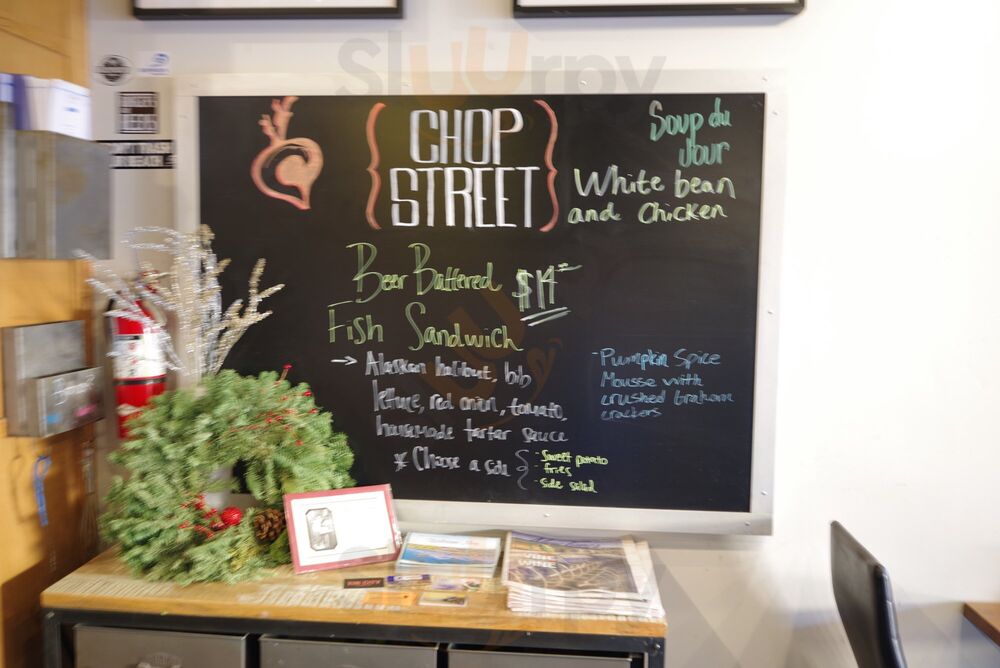 Sluurpy
{ CHOP
STREET }
Soup du
Jour
White bean
and Chicken
Beer Battered $14
Fish Sandwich
→ Alaskan halibut, bib
lettuce, red onion, tomato,
housemade tartar sauce
* Choose a side {
- Sweet potato
- fries
- Side salad
- Pumpkin Spice
Mousse with
crushed Graham
crackers
WINE